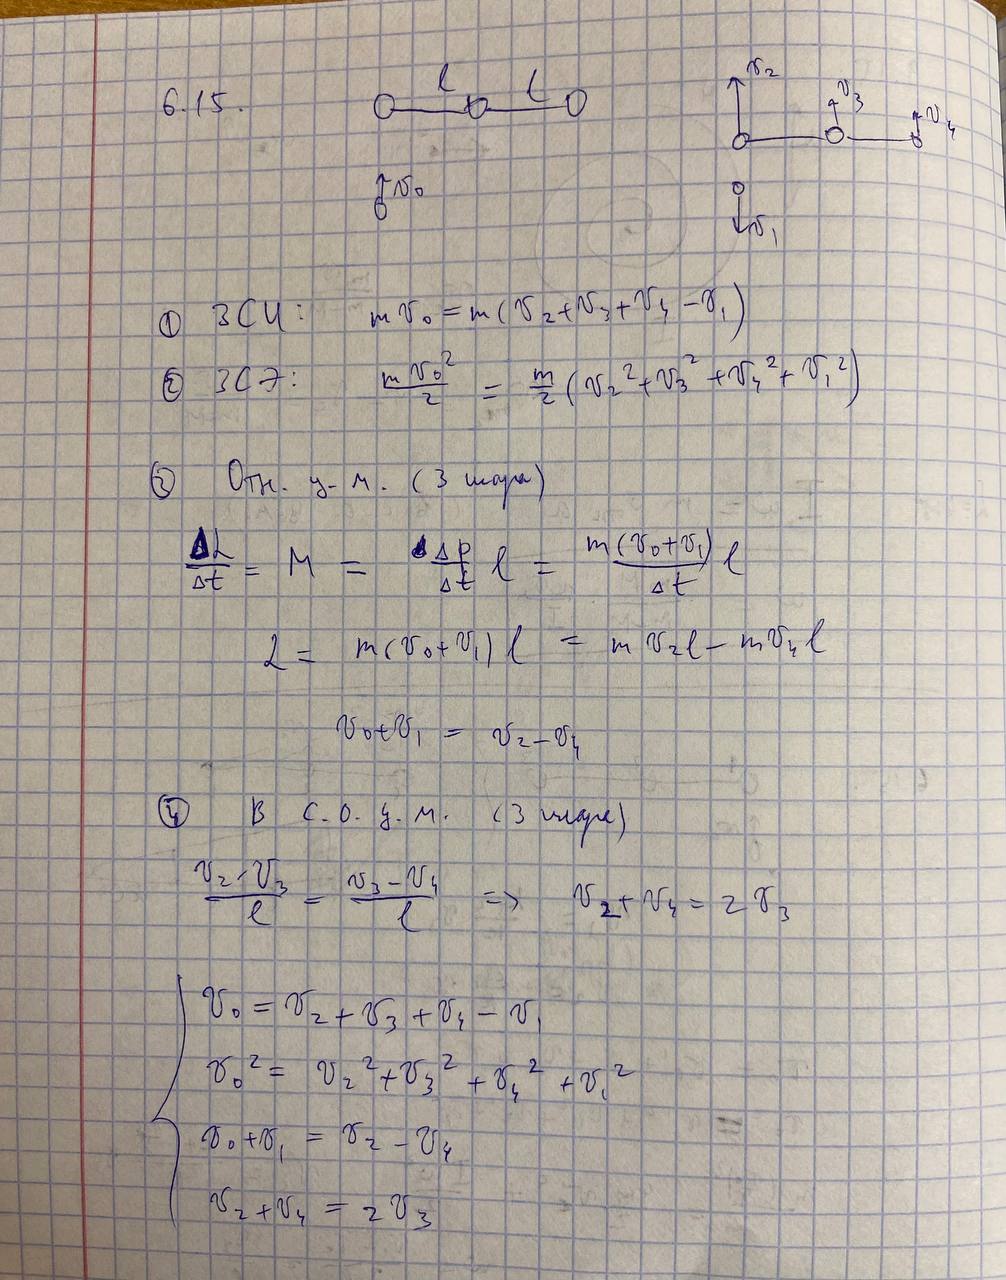 6.15.
l l
v₀
v₂ v₃ v₄
v₁
① ЗСИ: mv₀ = m(v₂+v₃+v₄-v₁)
② ЗСЭ: mv₀²/2 = m/2 (v₂²+v₃²+v₄²+v₁²)
③ Отн. ц.м. (3 шара)
ΔL/Δt = M = Δp/Δt l = m(v₀+v₁)/Δt l
L = m(v₀+v₁)l = mv₂l - mv₄l
v₀+v₁ = v₂-v₄
④ В с.о. ц.м. (3 шара)
(v₂-v₃)/l = (v₃-v₄)/l => v₂+v₄ = 2v₃
v₀ = v₂+v₃+v₄-v₁
v₀² = v₂²+v₃²+v₄²+v₁²
v₀+v₁ = v₂-v₄
v₂+v₄ = 2v₃